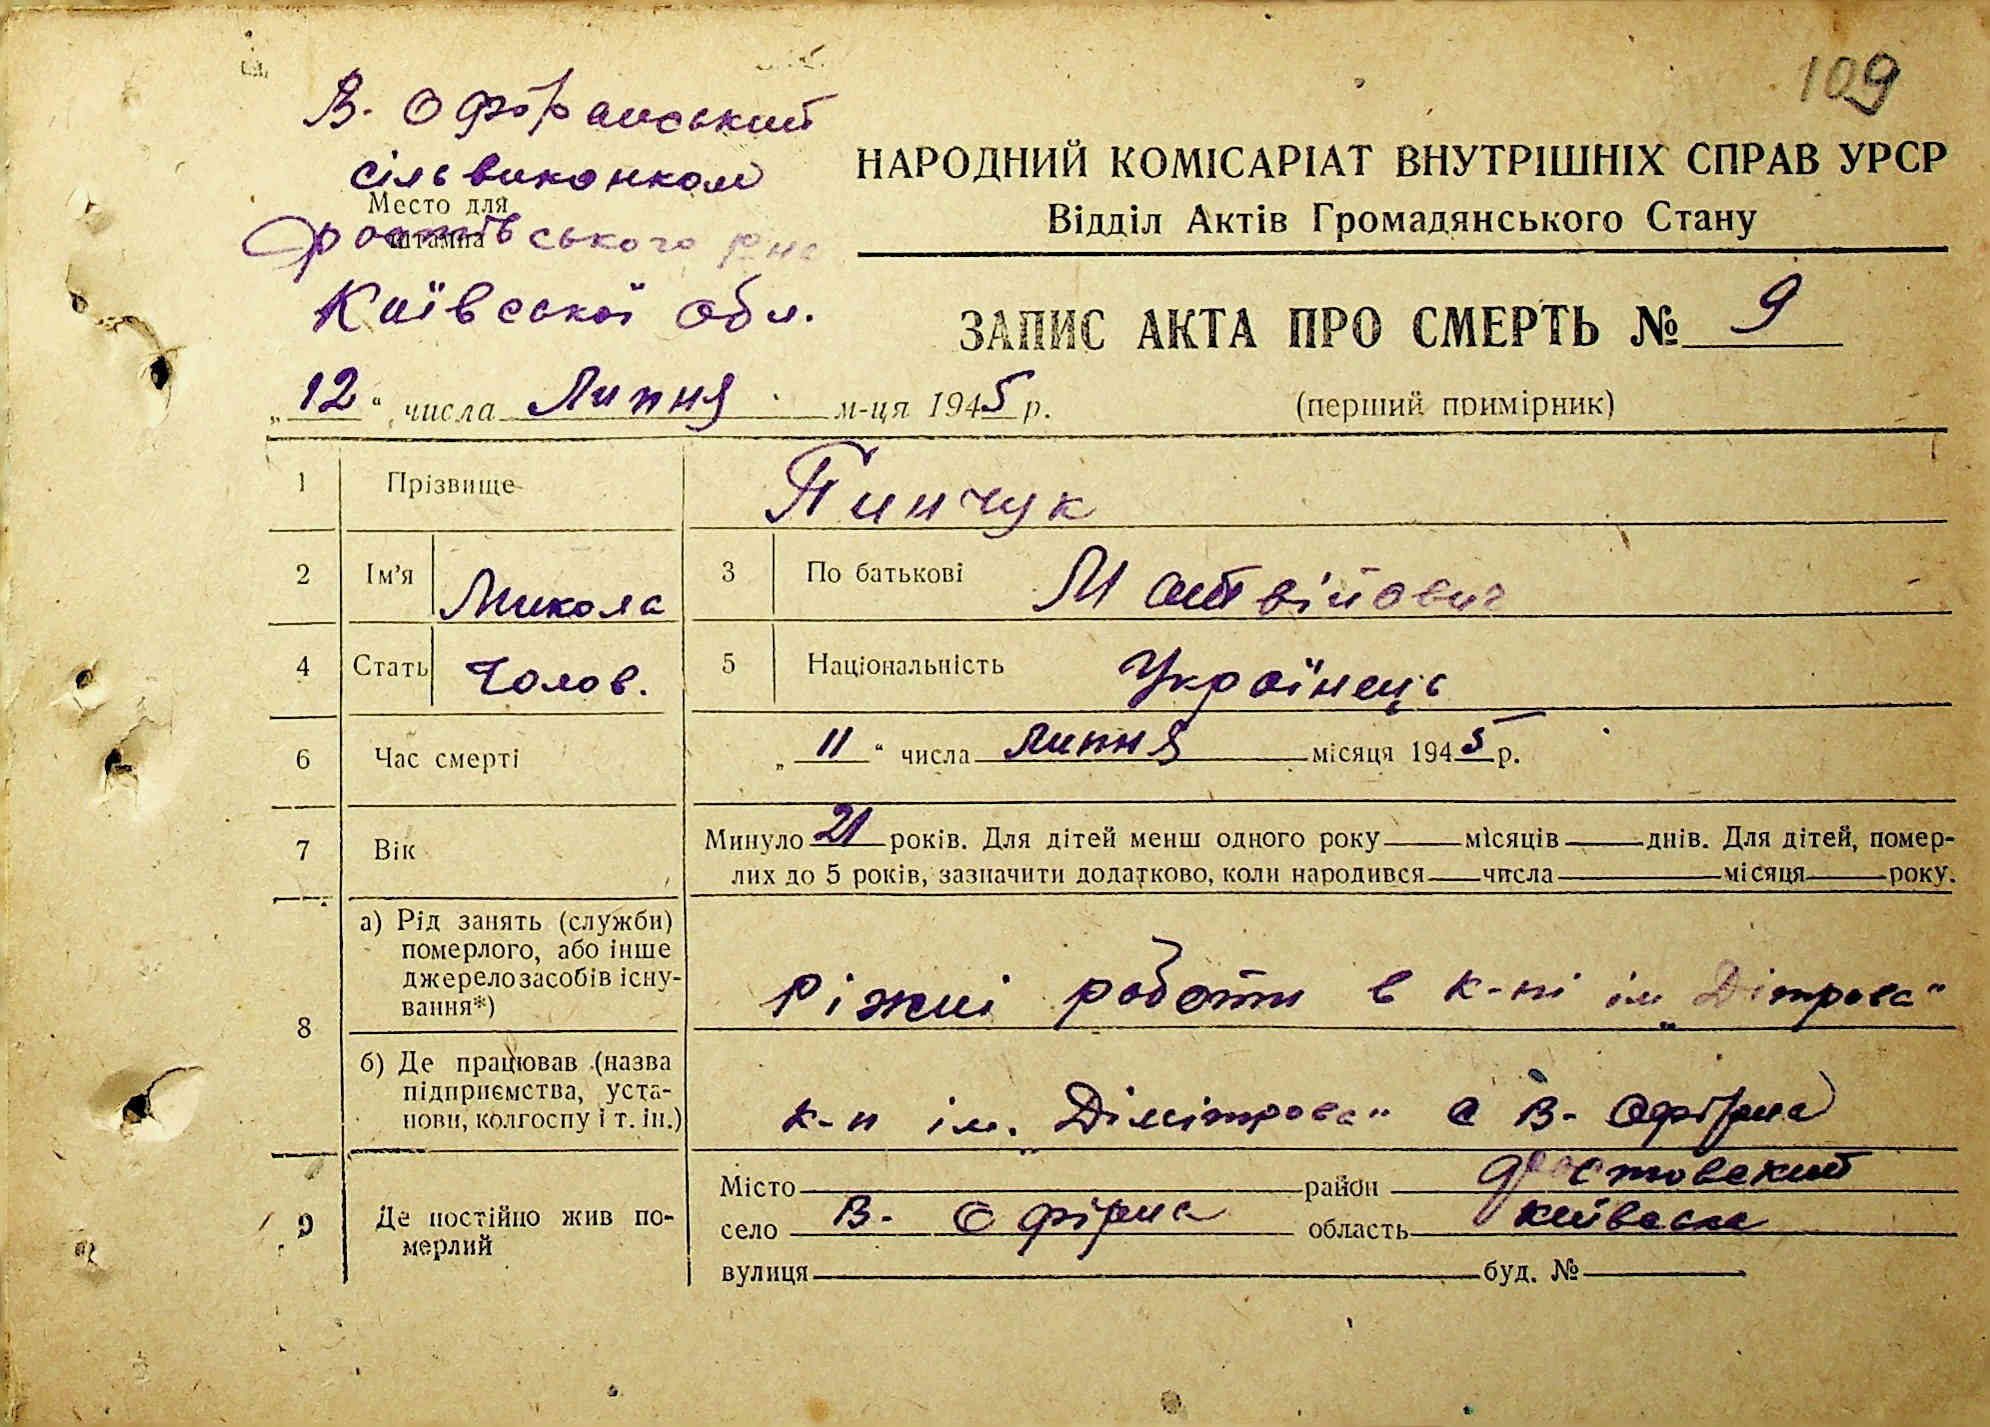 109
В. Офірнський
сільвиконком
Место для
штампа
Фастівського р-на
Київської обл.
НАРОДНИЙ КОМІСАРІАТ ВНУТРІШНІХ СПРАВ УРСР
Відділ Актів Громадянського Стану
ЗАПИС АКТА ПРО СМЕРТЬ № 9
„12“ числа Липня м-ця 1945 р.
(перший примірник)
1 Прізвище Пинчук
2 Ім’я Микола 3 По батькові Матвійович
4 Стать Чолов. 5 Національність Українець
6 Час смерті „11“ числа липня місяця 1945 р.
7 Вік Минуло 21 років. Для дітей менш одного року місяців днів. Для дітей, помер-
лих до 5 років, зазначити додатково, коли народився числа місяця року.
8 а) Рід занять (служби)
померлого, або інше
джерело засобів існу-
вання*)
Ріжні роботи в к-пі ім „Дітрова“
б) Де працював (назва
підприємства, уста-
нови, колгоспу і т. ін.)
к-п ім. „Дімітрова“ с В- Офірна
9 Де постійно жив по-
мерлий
Місто район Фастовский
село В- Офірна область Київська
вулиця буд. №